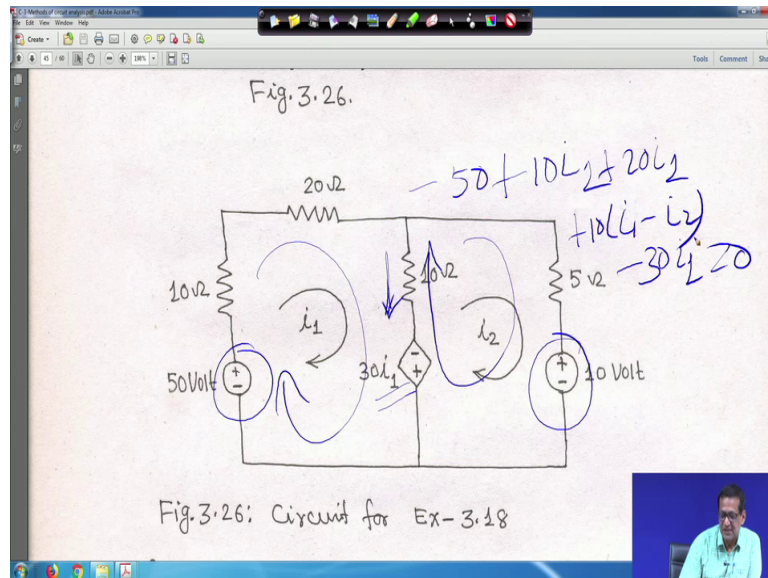 C-3-Methods of circuit analysis.pdf - Adobe Acrobat Pro
File Edit View Window Help
Create
45 / 80
198%
Tools Comment
Fig. 3.26.
- 50 + 10i2 + 20i2
20Ω
+10(i1 - i2)
10Ω
5Ω
- 30i1 = 0
10Ω
i1
i2
50Volt
30i1
10 Volt
Fig. 3.26: Circuit for Ex-3.18